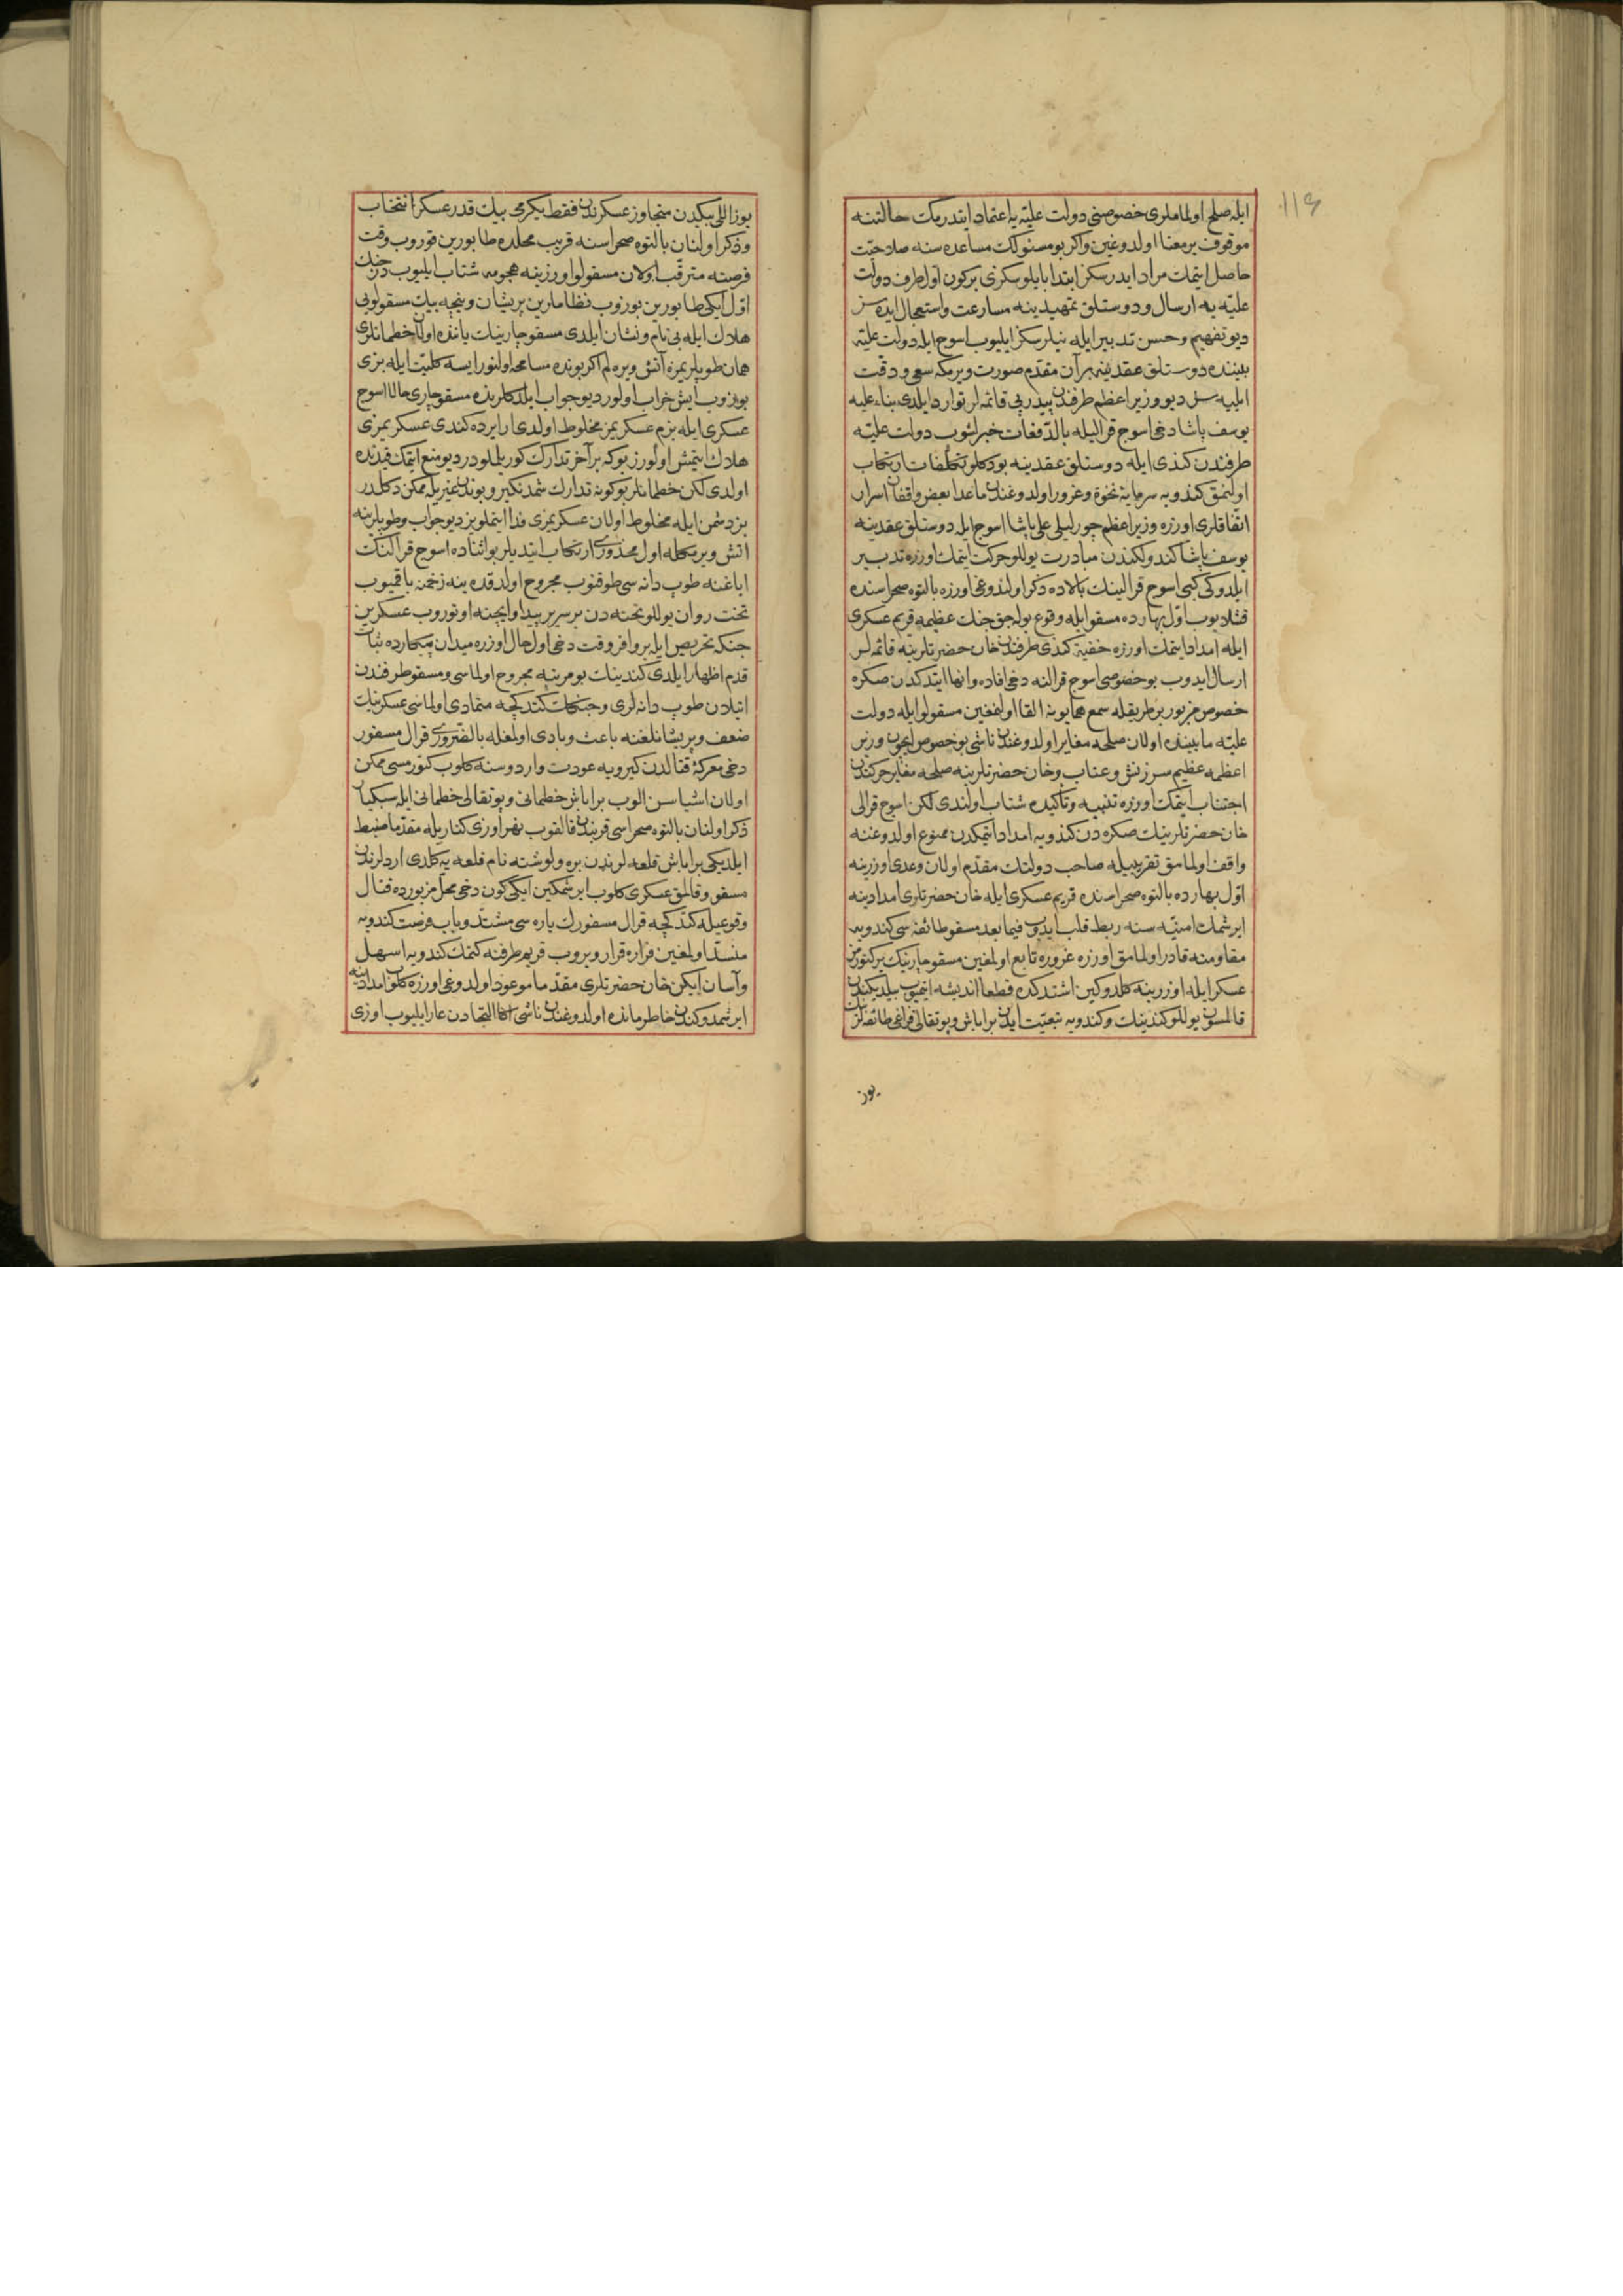 ایله صلح اولماملری خصوصنی دولت علیه یه اعتماد ایتدرمك حالتنه
موقوف بر معنا اولدوغین واکر بو مسئولك مساعده سنه صلاحیت
حاصل ایتمك مراد ایدرسكز ابتدا بایلوسكزی بركون اول طرف دولت
علیه یه ارسال و دوستلق تمهیدینه مسارعت و استعجال ایده سز
دیو تفهیم و حسن تدبیر ایله نیلرسكز ایلیوب اسوج ایله دولت علیه
بیننده دوستلق عقدینه بر آن مقدم صورت ویرمكه سعی و دقت
ایلیه سز دیو وزیر اعظم طرفندن پیدرپی قائمه لر توارد ایلدی بناء علیه
یوسف پاشا دخی اسوج قرالیله بالدفعات خبرلشوب دولت علیه
طرفندن كندی ایله دوستلق عقدینه بودكلو تكلفات ارتكاب
اولنمق كندویه سرمایهٔ نخوة و غرور اولدوغندن ماعدا بعض واقفان اسرار
اتفاقلری اوزره وزیر اعظم چورلیلی علی پاشا اسوج ایله دوستلق عقدینه
یوسف پاشا كندولكندن مبادرت یوللو حركت ایتمك اوزره تدبیر
ایلدوكی كبی اسوج قرالینك بالاده ذكر اولندوغی اوزره بالتوه صحراسنده
قشلایوب اول بهارده مسقو ایله وقوع بوله جق جنك عظیمه قریم عسكری
ایله امداد ایتمك اوزره خفیة كندی طرفندن خان حضرتلرینه قائمه لر
ارسال ایدوب بو خصوصی اسوج قرالنه دخی افاده و انها ایتدكدن صكره
خصوص مزبور بر طریقله سمع همایونه القا اولنمغین مسقولو ایله دولت
علیه مابیننده اولان صلحه مغایر اولدوغندن ناشی بو خصوص ایچون وزیر
اعظمه عظیم سرزنش و عتاب و خان حضرتلرینه صلحه مغایر حركتدن
اجتناب ایتمك اوزره تنبیه و تأكیده شتاب اولندی لكن اسوج قرالی
خان حضرتلرینك صكره دن كندویه امداد ایتمكدن ممنوع اولدوغنه
واقف اولمامق تقریبیله صاحب دولتك مقدم اولان وعدی اوزرینه
اول بهارده بالتوه صحراسنده قریم عسكری ایله خان حضرتلری امدادینه
ایرشمك امنیه سنه ربط قلب ایدوب فیما بعد مسقو طائفه سی كندویه
مقاومته قادر اولمامق اوزره غروره تابع اولمغین مسقو چارینك بر كتورمز
عسكر ایله اوزرینه كلدوكین اشتدكده قطعا اندیشه ایتمیوب بیلدیكندن
قالمسون یوللو كندینك و كندویه تبعیت ایدن براباش و پوتقالی قزاغی طائفه لرینك
یوز
یوز اللی بیكدن متجاوز عسكرندن فقط یكرمی بیك قدر عسكر انتخاب
و ذكر اولنان بالتوه صحراسنه قریب محلده طابورین قوروب وقت
فرصته مترقب اولان مسقولو اوزرینه هجومه شتاب ایلیوب درجنك
اول ایكی طابورین بوزوب نظاملرین پریشان و نیچه بیك مسقولویی
هلاك ایله بی نام و نشان ایلدی مسقو چارینك یاننده اولان خطمانلری
همان طوپلریمزه آتش ویره لم اكر بونده مسامحه اولنور ایسه كلیت ایله بزی
بوزوب ایش خراب اولور دیو جواب ایلدكلرنده مسقو چاری حالا اسوج
عسكری ایله بزم عسكریمز مخلوط اولدی ارایرده كندی عسكریمزی
هلاك ایتمش اولورز بوكه بر آخر تدارك كوریلملودر دیو منع ایتمك قیدنده
اولدی لكن خطمانلر بوكونه تدارك شمدنكیرو بوندن غیریله ممكن دكلدر
بز دشمن ایله مخلوط اولان عسكریمزی فدا ایتملویز دیو جواب و طوپلرینه
اتش ویرمكله اول محذوری ارتكاب ایتدیلر بو اثناده اسوج قرالنك
ایاغنه طوپ دانه سی طوقنوب مجروح اولدقده ینه زخمنه باقمیوب
تخت روان یوللو تخته دن بر سریر پیدا و ایچنه اوتوروب عسكرین
جنكه تحریص ایله بر وافر وقت دخی اول حال اوزره میدان پیكارده ثبات
قدم اظهار ایلدی كندینك بو مرتبه مجروح اولماسی و مسقو طرفندن
اتیلان طوپ دانه لری و جنك كتدكجه متمادی اولماسی عسكرینك
ضعف و پریشانلغنه باعث و بادی اولمغله بالضروری قرال مسفور
دخی معركهٔ قتالدن كیرویه عودت و اردوسنه كلوب كتورمسی ممكن
اولان اشیاسن الوب براباش خطمانی و پوتقالی خطمانی ایله سكیان
ذكر اولنان بالتوه صحراسی قربندن قالقوب نهر اوزی كناریله مقدما ضبط
ایلدیكی براباش قلعه لرندن بره ولوشنه نام قلعه یه كلدی اردلرندن
مسقو و قالمق عسكری كلوب ایرشمكین ایكی كون دخی محل مزبورده قتال
وقوعیله كتدكجه قرال مسفورك یاره سی مشتد و باب فرصت كندویه
منسد اولمغین فراره قرار ویروب قریم طرفنه كتمك كندویه اسهل
و آسان ایكن خان حضرتلری مقدما موعود اولدوغی اوزره كلوب امدادینه
ایرشمدوكندن خاطرمانده اولدوغندن ناشی اكا التجادن عار ایلیوب اوزی